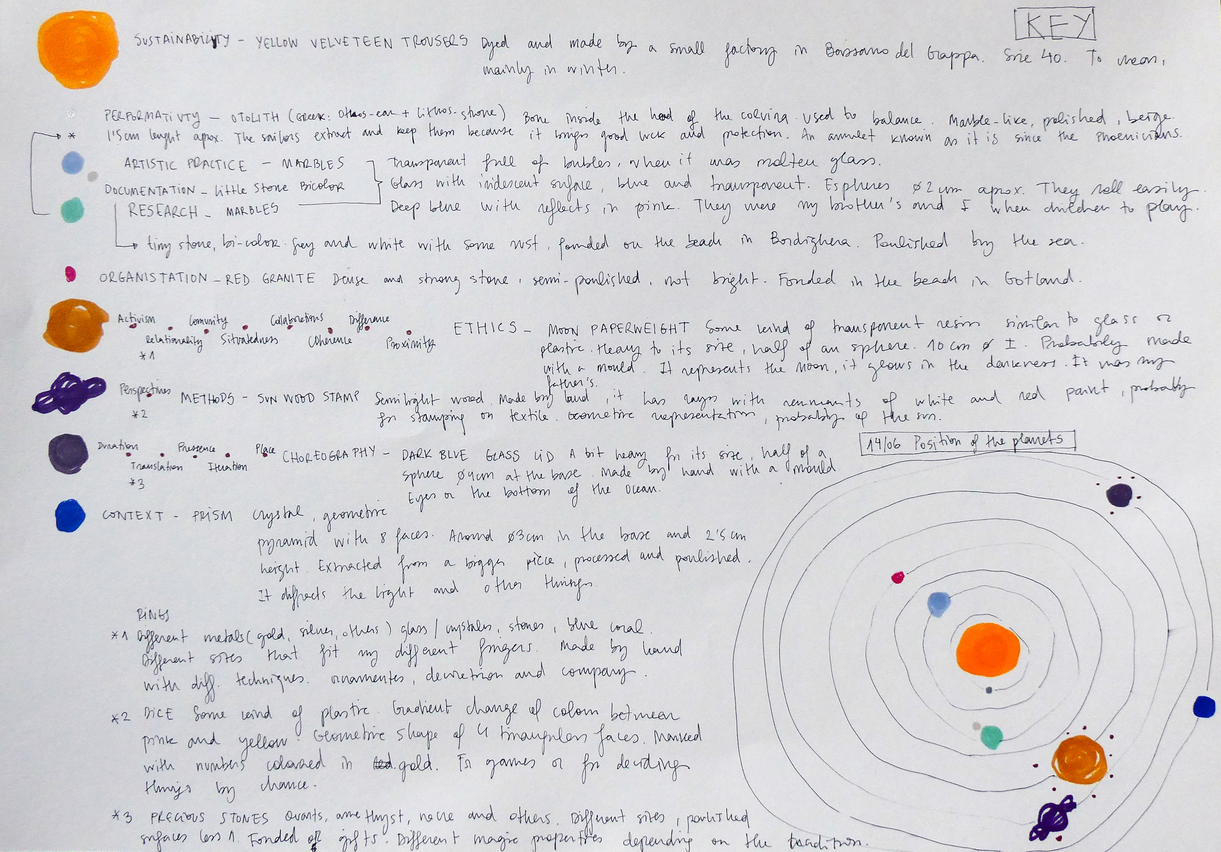 KEY
SUSTAINABILITY - YELLOW VELVETEEN TROUSERS Dyed and made by a small factory in Bassano del Grappa. Size 40. To wear,
mainly in winter.
PERFORMATIVTY - OTOLITH (Greek: Othos-ear + Lithos-stone) Bone inside the head of the corvina used to balance. Marble-like, polished, beige.
* 1'5cm lenght aprox. The sailors extract and keep them because it brings good luck and protection. An amulet known as it is since the Phoenicians.
ARTISTIC PRACTICE - MARBLES Transparent full of bubbles, when it was molten glass.
DOCUMENTATION - Little Stone Bicolor Glass with iridescent surface, blue and transparent. Espheres ø 2 cm aprox. They roll easily.
RESEARCH - MARBLES Deep blue with reflects in pink. They were my brother's and I when children to play.
tiny stone, bi-color. Grey and white with some rust, founded on the beach in Bordighera. Poulished by the sea.
ORGANISTATION - RED GRANITE Dense and strong stone, semi-poulished, not bright. Fonded in the beach in Gotland.
Activism Comunity Colaborations Difference
Relationality Situatedness Coherence Proximity
*1
ETHICS - MOON PAPERWEIGHT Some kind of transparent resin similar to glass or
plastic. Heavy to its size, half of an sphere. 10 cm ø I. Probably made
with a mould. It represents the Moon, it glows in the darkness. It was my
father's.
Perspectives
*2
METHODS - SUN WOOD STAMP Semilight wood. Made by hand, it has rays with remnants of white and red paint, probably
for stamping on textile. Geometric representation, probably of the sun.
Duration Pressence Place
Translation Iteration
*3
CHOREOGRAPHY - DARK BLUE GLASS LID A bit heavy for its size, half of a
sphere ø 4cm at the base. Made by hand with a mould
Eyes or the bottom of the ocean.
14/06 Position of the planets
CONTEXT - PRISM Crystal, geometric
pyramid with 8 faces. Around ø3cm in the base and 2'5cm
height. Extracted from a bigger piece, processed and poulished.
It diffracts the light and other things.
RINGS
*1 Different metals (gold, silver, others) glass/crystales, stones, blue coral.
Different sizes that fit my different fingers. Made by hand
with diff. techniques. Ornamentes, devotion and company.
*2 DICE Some kind of plastic. Gradient change of colour between
pink and yellow. Geometric shape of 4 triangular faces. Marked
with numbers coloured in gold. For games or for deciding
things by chance.
*3 PRECIOUS STONES Quarts, amethyst, and others. Different sizes, poulished
surfaces less 1. Fonded or gifts. Different magic properties depending on the tradition.